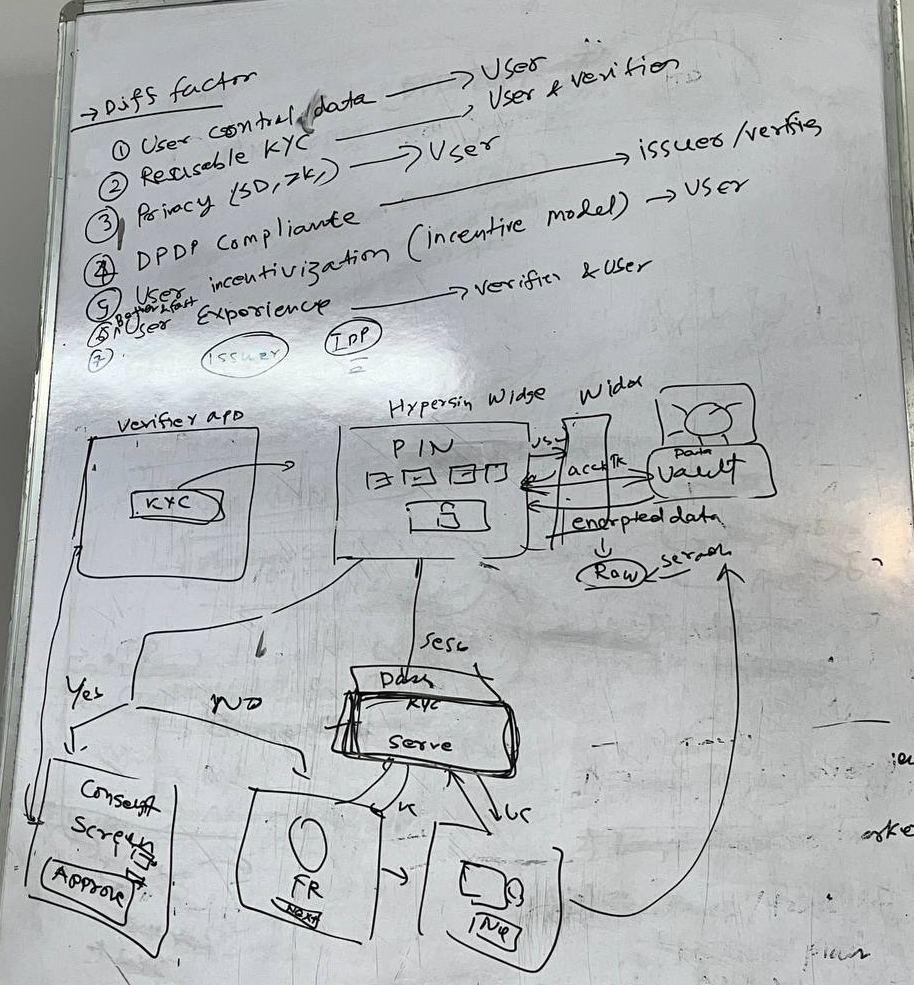 → Diff factor
① User control/data → User
② Resusable KYC → User & verifier
③ Privacy (SD, ZK,) → User
④ DPDP Compliante → issuer/verifier
⑤ User incentivization (incentive model) → User
⑥ Better & fast User Experience → verifier & User
⑦
issuer IDP
Verifier app
Hypersin Widge
KYC
PIN
acc
Data
Vault
encrpted data
Raw
Yes
NO
sesc
KYC
Serve
VC
Consent
Screen
Approve
FR
Next